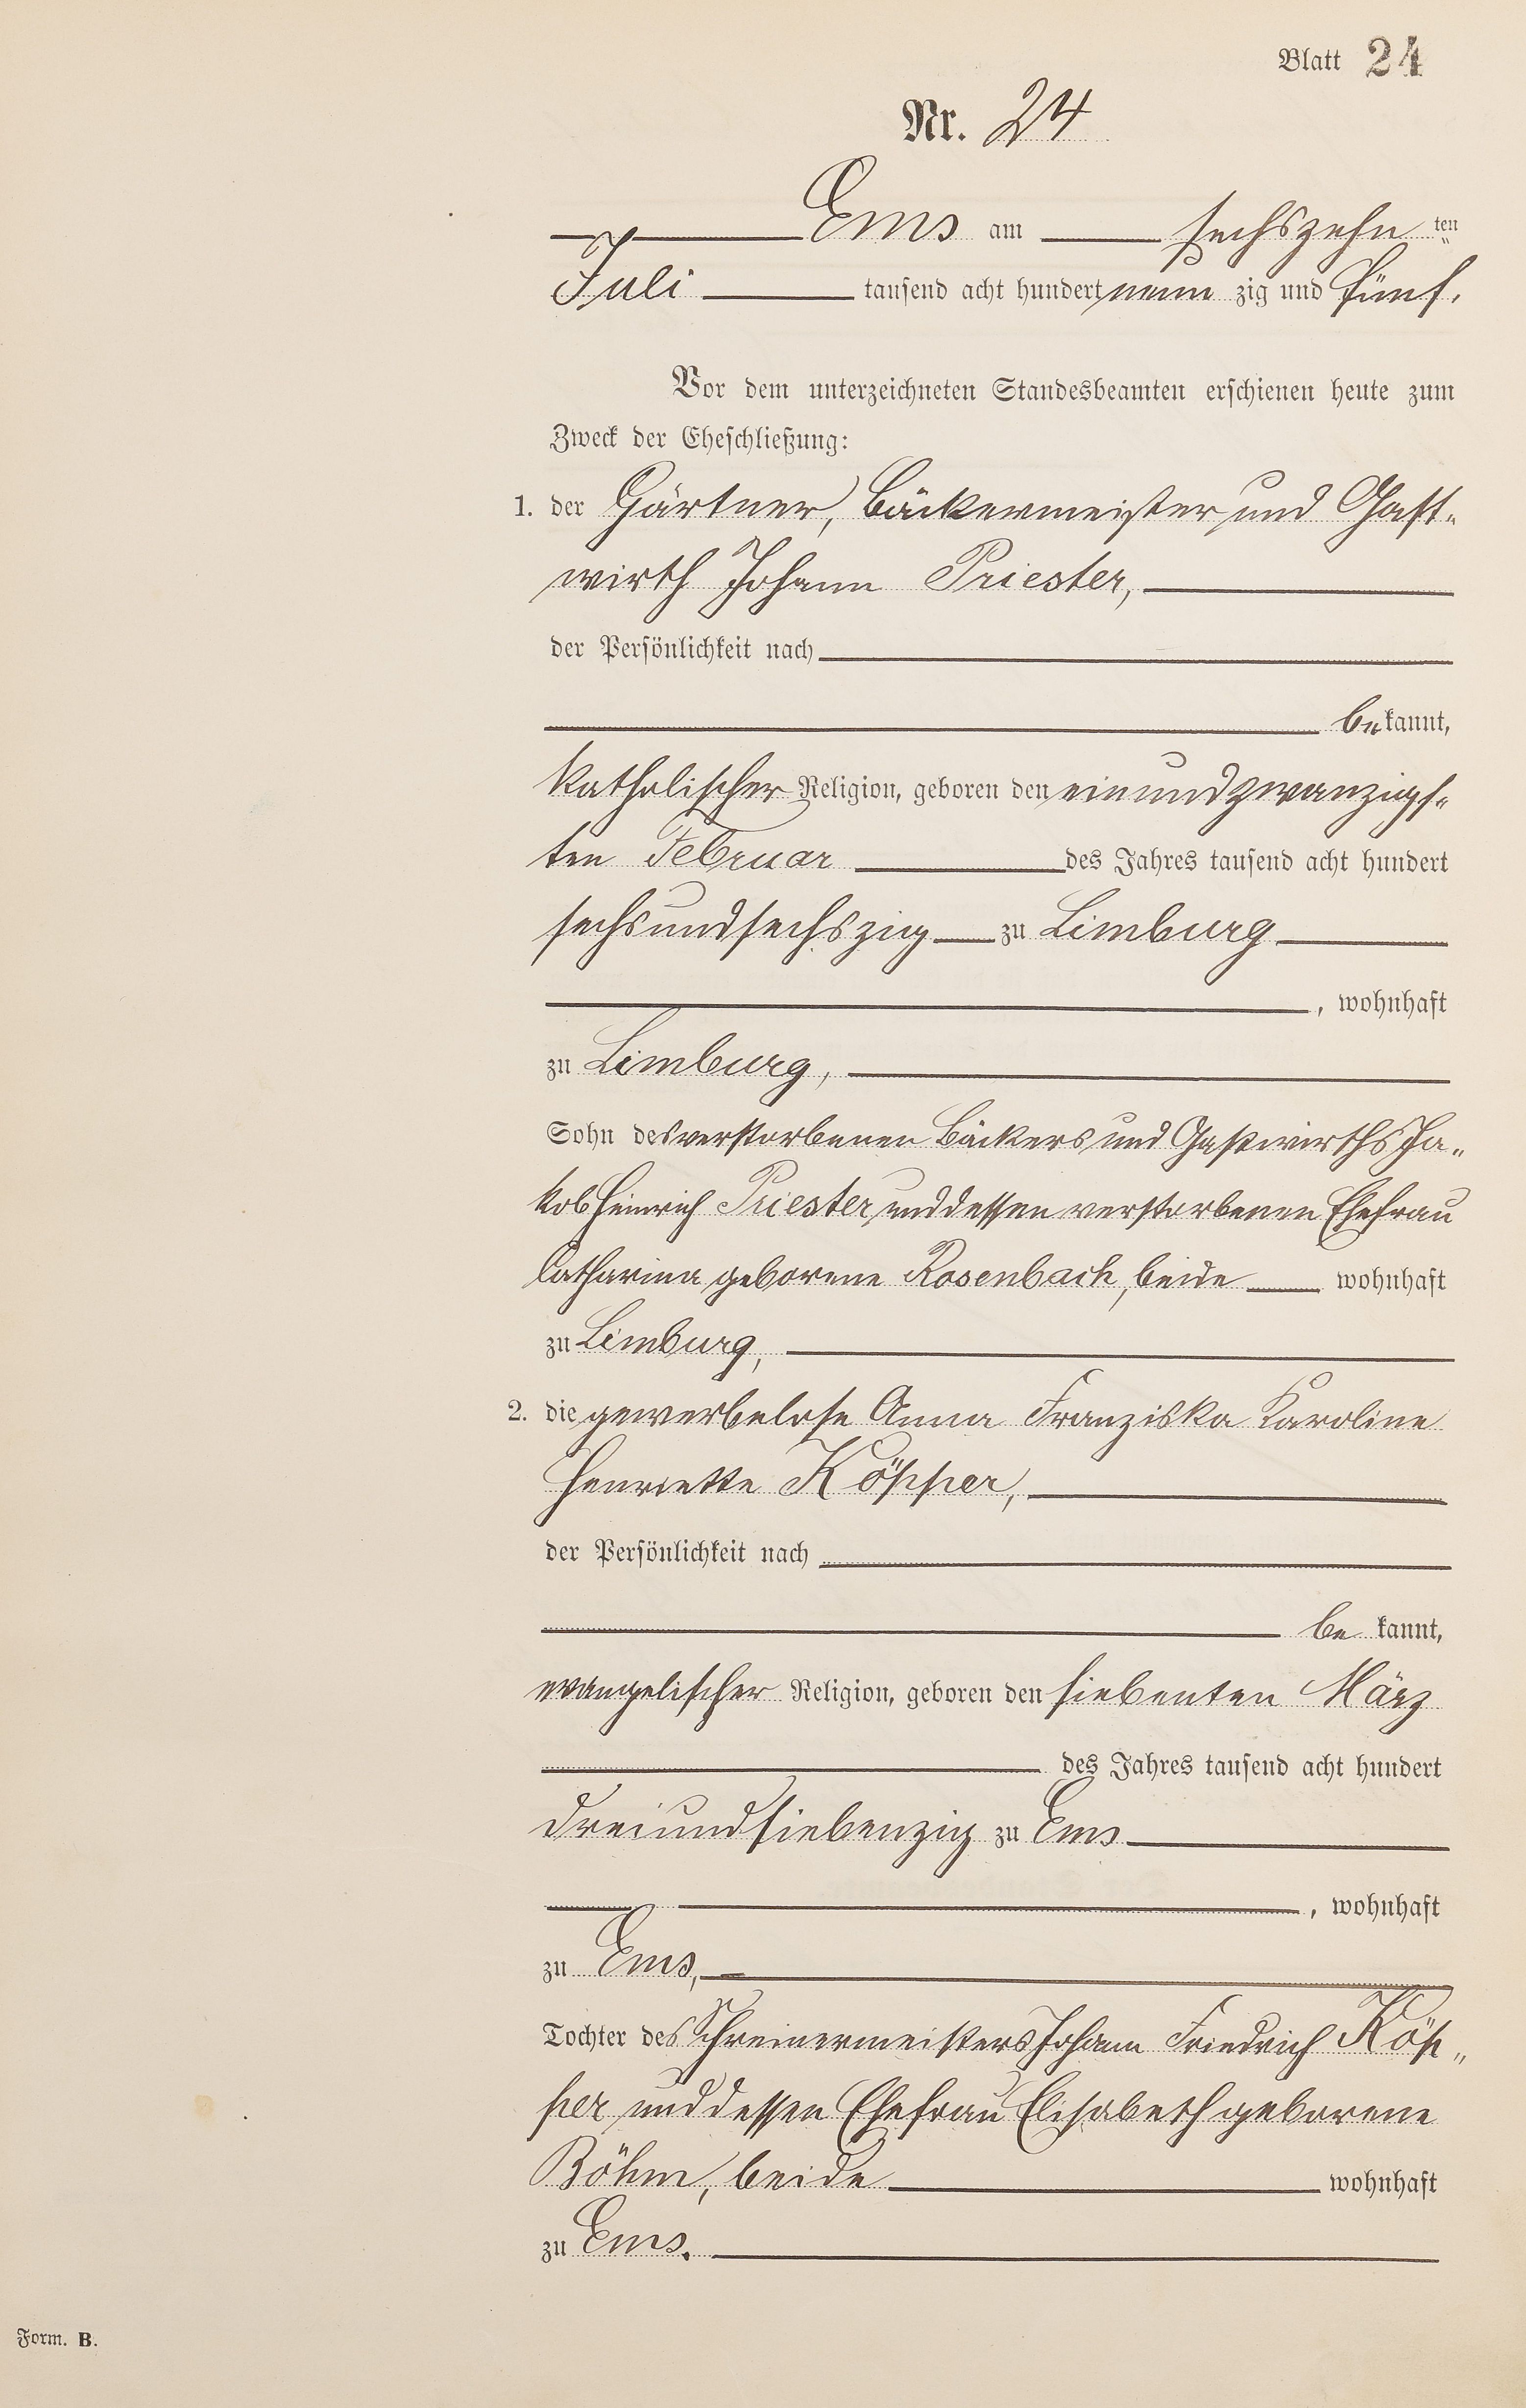 Blatt 24
Nr. 24
Ems am sechszehn ten
Juli tausend acht hundert neun zig und fünf.
Vor dem unterzeichneten Standesbeamten erschienen heute zum
Zweck der Eheschließung:
1. der Gärtner, Bäckermeister und Gast-
wirth Johann Priester,
der Persönlichkeit nach
be kannt,
katholischer Religion, geboren den einundzwanzigs-
ten Februar des Jahres tausend acht hundert
sechsundsechszig zu Limburg
, wohnhaft
zu Limburg,
Sohn des verstorbenen Bäckers und Gastwirths Ja-
kob Heinrich Priester und dessen verstorbenen Ehefrau
Catharina geborene Rosenbach, beide wohnhaft
zu Limburg,
2. die gewerbelose Anna Franziska Karoline
Henriette Köpper,
der Persönlichkeit nach
be kannt,
evangelischer Religion, geboren den siebenten März
des Jahres tausend acht hundert
dreiundsiebenzig zu Ems
, wohnhaft
zu Ems,
Tochter des Schreinermeisters Johann Friedrich Köp-
per und dessen Ehefrau Elisabeth geborene
Böhm, beide wohnhaft
zu Ems.
Form. B.